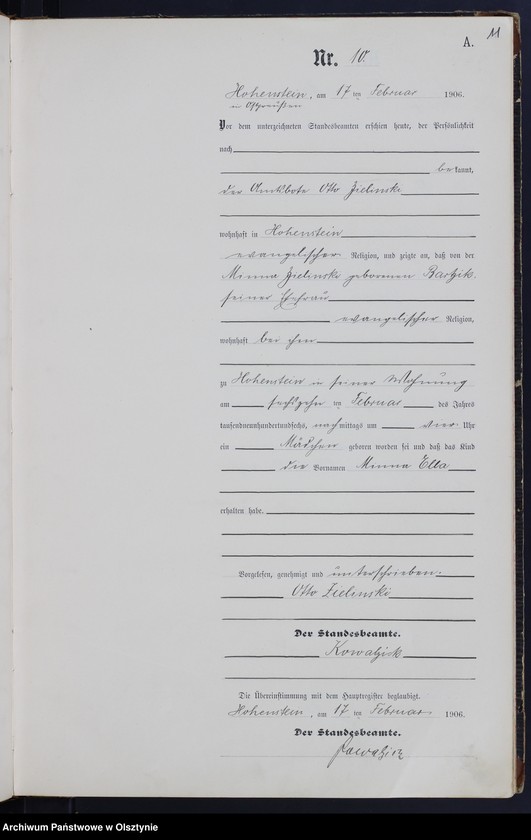 11
A.
Nr. 10.
Hohenstein, am 17ten Februar 1906.
in Ostpreußen
Vor dem unterzeichneten Standesbeamten erschien heute, der Persönlichkeit
nach
bekannt,
der Amtsbote Otto Zielinski
wohnhaft in Hohenstein
evangelischer Religion, und zeigte an, daß von der
Minna Zielinski geborenen Bartzik
seiner Ehefrau
evangelischer Religion,
wohnhaft bei ihm
zu Hohenstein in seiner Wohnung
am sechzehn ten Februar des Jahres
tausendneunhundertundsechs, nachmittags um vier Uhr
ein Mädchen geboren worden sei und daß das Kind
die Vornamen Minna Ella
erhalten habe.
Vorgelesen, genehmigt und unterschrieben.
Otto Zielinski
Der Standesbeamte.
Kowatzick
Die Übereinstimmung mit dem Hauptregister beglaubigt.
Hohenstein, am 17ten Februar 1906.
Der Standesbeamte.
Kowatzick
Archiwum Państwowe w Olsztynie